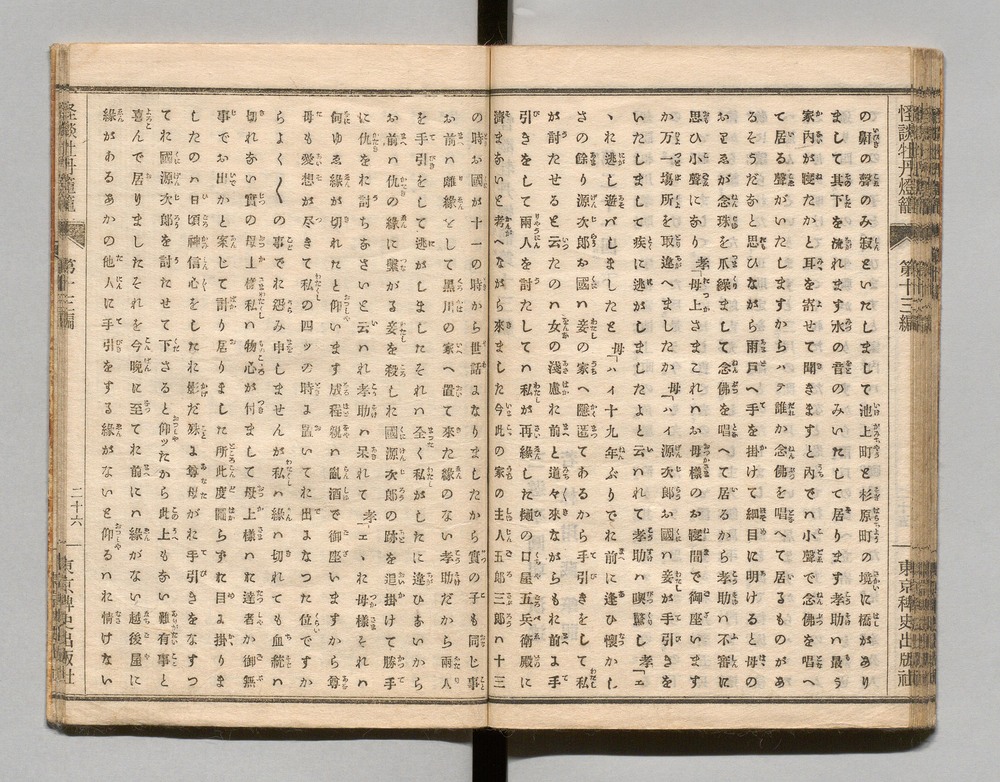 怪談牡丹燈籠
第十三編
東京稗史出版社
の鼾の聲のみ寂としいたしまして池上町と杉原町の境に橋があり
まして其下を流れます水の音のみいたして居ります孝助ハ最う
家内が寝たかと耳を寄せて聞きますと内でハ小聲で念佛を唱へ
て居る聲がいたしますからハテ誰か念佛を唱へて居るものがあ
るそうだなと思ひながら雨戸へ手を掛けて細目に明けると母の
おりゑが念珠を爪繰まして念佛を唱へて居るから孝助ハ不審に
思ひ小聲になり孝「母上さまこれハお母様のお寝間で御座います
か万一塲所を取違へましたか母「ハイ源次郎お國ハ妾しが手引を
いたしまして疾に逃がしましたよと云ハれて孝助ハ喫驚し孝「ェ
ヽお逃し遊バしましたと母「ハイ十九年ぶりでお前に逢ひ懐かし
さの餘り源次郎お國ハ妾しの家へ隠匿てあるから手引きをして私
が討たせると云つたのハ女の淺慮お前と道々來ながらもお前に手
引きをして兩人を討たしてハ私が再緣した樋の口屋五兵衛殿に
濟まないと考へながら來ました今此の家の主人五郎三郎ハ十三
の時お國が十一の時から世話になりましたから實の子も同じ事
お前ハ離緣をして黒川の家へ置て來た緣のない孝助だから兩人
を手引をして逃がしましたそれハ全く私がしたに違ひないから
お前ハ仇の緣に繋がる妾を殺した國源次郎の跡を追掛けて勝手
に仇をお討ちなさいと云ハれ孝助ハ呆れて孝「ェヽお母様それハ
何ゆゑ緣が切れたと仰います成程親ハ亂酒で御座いますから尊
母も愛想が尽きて私の四ッの時に置いてお出になつた位ですか
らよく〳〵の事でお怨み申しませんが私ハ緣ハ切れても血筋ハ
切れない實の母上様私ハ物心が付まして母上様ハお達者か御無
事でお出かと案じて計り居りました所此度圖らずお目に掛りま
したのハ日頃神信心をしたお影だ殊に尊母がお手引きをなすつ
てお國源次郎を討たせて下さると仰ッたから此上もない難有事と
喜んで居りましたそれを今晩に至てお前にハ緣がない越後屋に
緣があるあかの他人に手引をする緣がないと仰るハお情けない
怪談牡丹燈籠
第十三編
二十六
東京稗史出版社